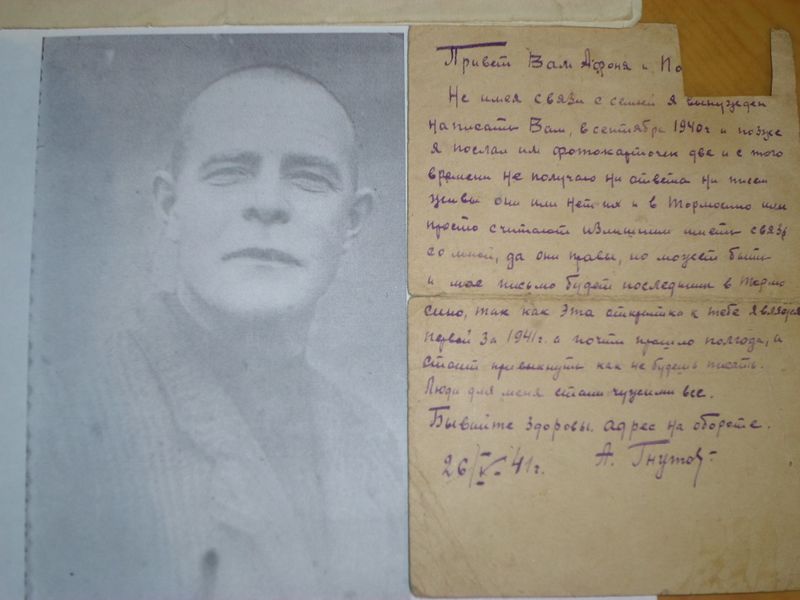 Привет Вам Афоня и По
Не имея связи с семьей я вынужден
написать Вам, в сентябре 1940г и позже
я послал им фотокарточек две и с того
времени не получаю ни ответа ни писем
живы они или нет их и в Тормосино или
просто считают излишним иметь связь
со мной, да они правы, но может быть
и мое письмо будет последним в Тормо
сино, так как эта открытка к тебе является
первой за 1941г. а почти прошло полгода, и
стоит привыкнуть как не будешь писать.
Люди для меня стали чужими все.
Бывайте здоровы. адрес на обороте.
26/V-41г. А. Гнутов